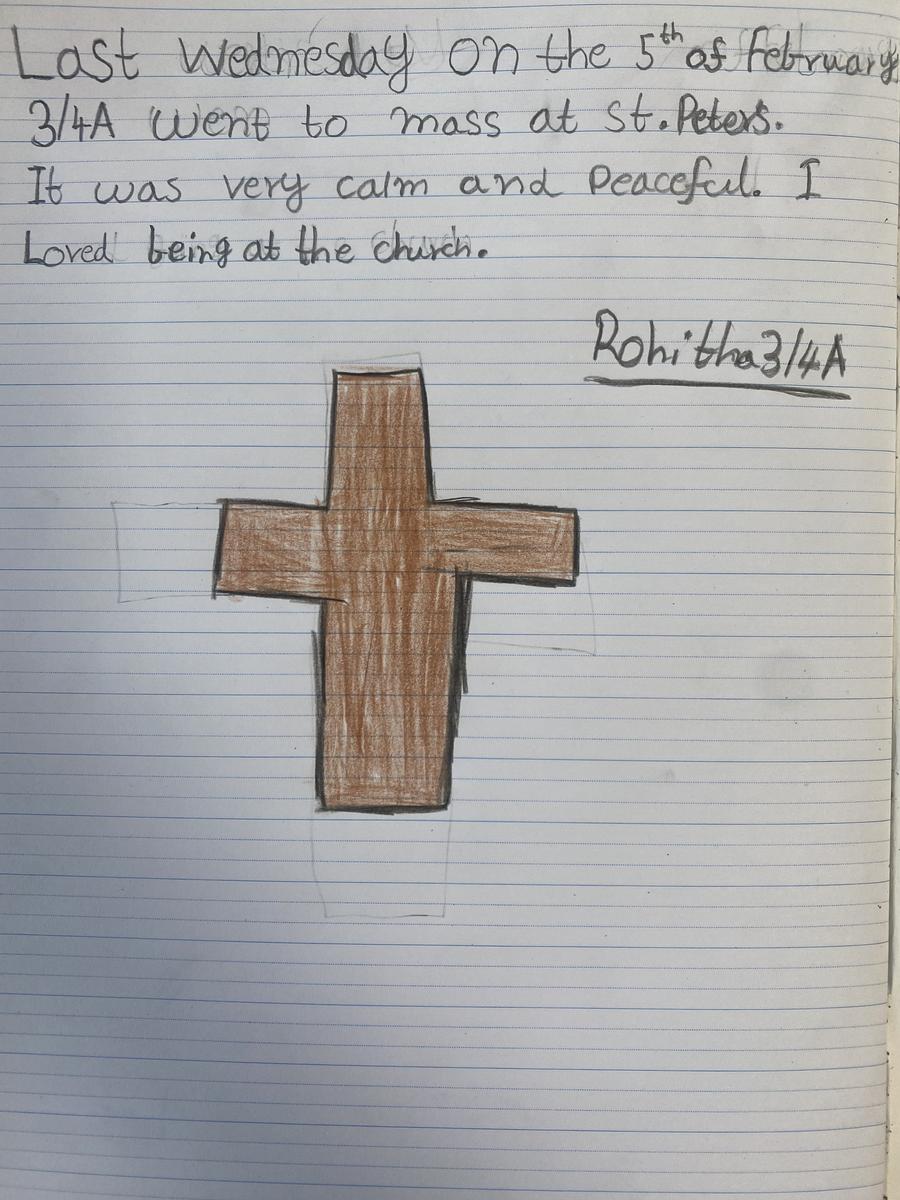 Last Wednesday on the 5th of February
3/4A went to mass at St. Peters.
It was very calm and Peaceful. I
Loved being at the church.
Rohitha 3/4A